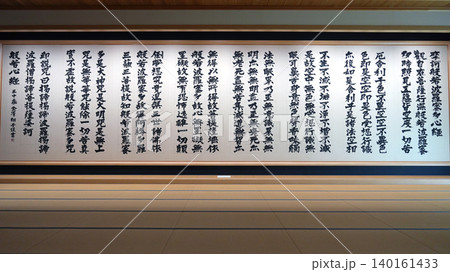 摩訶般若波羅蜜多心経
観自在菩薩行深般若波羅蜜
多時照見五蘊皆空度一切苦
厄舎利子色不異空空不異色
色即是空空即是色受想行識
亦復如是舎利子是諸法空相
不生不滅不垢不浄不増不減
是故空中無色無受想行識無
眼耳鼻舌身意無色声香味触
法無眼界乃至無意識界無無
明亦無無明尽乃至無老死亦
無老死尽無苦集滅道無智亦
無得以無所得故菩提薩埵依
般若波羅蜜多故心無罣礙無
罣礙故無有恐怖遠離一切顛
倒夢想究竟涅槃三世諸仏依
般若波羅蜜多故得阿耨多羅
三藐三菩提故知般若波羅蜜
多是大神呪是大明呪是無上
呪是無等等呪能除一切苦真
実不虚故説般若波羅蜜多呪
即説呪曰羯諦羯諦波羅羯諦
波羅僧羯諦菩提薩婆訶
般若心経
pixta.jp - 140161433